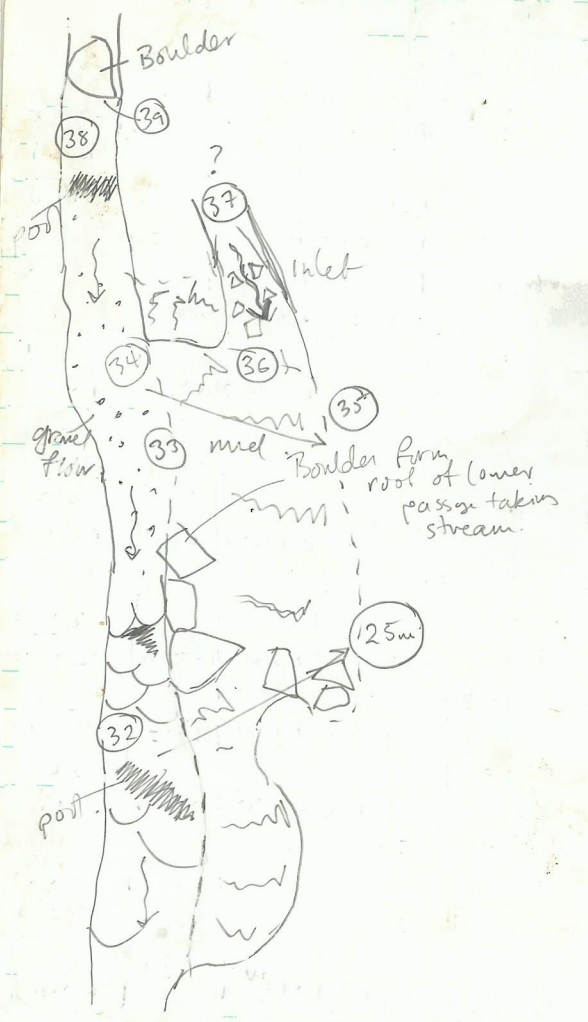 Boulder
39
38
?
37
pool
inlet
34
36
35
gravel
flow
33
mud
Boulder form
roof of lower
passage taking
stream.
125m
32
pool